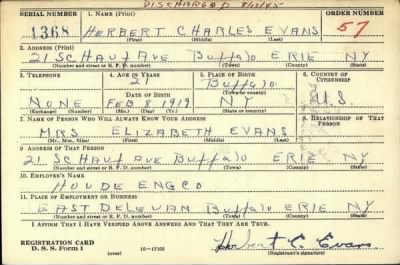 DISCHARGED
SERIAL NUMBER 1. NAME (Print) ORDER NUMBER
1368 HERBERT CHARLES EVANS 57
(First) (Middle) (Last)
2. ADDRESS (Print)
21 SCHAUF AVE Buffalo ERIE NY
(Number and street or R. F. D. number) (Town) (County) (State)
3. TELEPHONE 4. AGE IN YEARS 5. PLACE OF BIRTH 6. COUNTRY OF CITIZENSHIP
21 Buffalo
DATE OF BIRTH (Town or county)
NONE FEB 8 1919 NY U.S.
(Exchange) (Number) (Mo.) (Day) (Yr.) (State or country)
7. NAME OF PERSON WHO WILL ALWAYS KNOW YOUR ADDRESS 8. RELATIONSHIP OF THAT PERSON
MRS ELIZABETH EVANS
(Mr., Mrs., Miss) (First) (Middle) (Last)
9. ADDRESS OF THAT PERSON
21 SCHAUF AVE Buffalo ERIE NY
(Number and street or R. F. D. number) (Town) (County) (State)
10. EMPLOYER'S NAME
HOUDE ENG CO
11. PLACE OF EMPLOYMENT OR BUSINESS
EAST DELEVAN Buffalo ERIE NY
(Number and street or R. F. D. number) (Town) (County) (State)
I AFFIRM THAT I HAVE VERIFIED ABOVE ANSWERS AND THAT THEY ARE TRUE.
REGISTRATION CARD
D. S. S. Form 1 (over) 16—17105 Herbert C. Evans
(Registrant's signature)